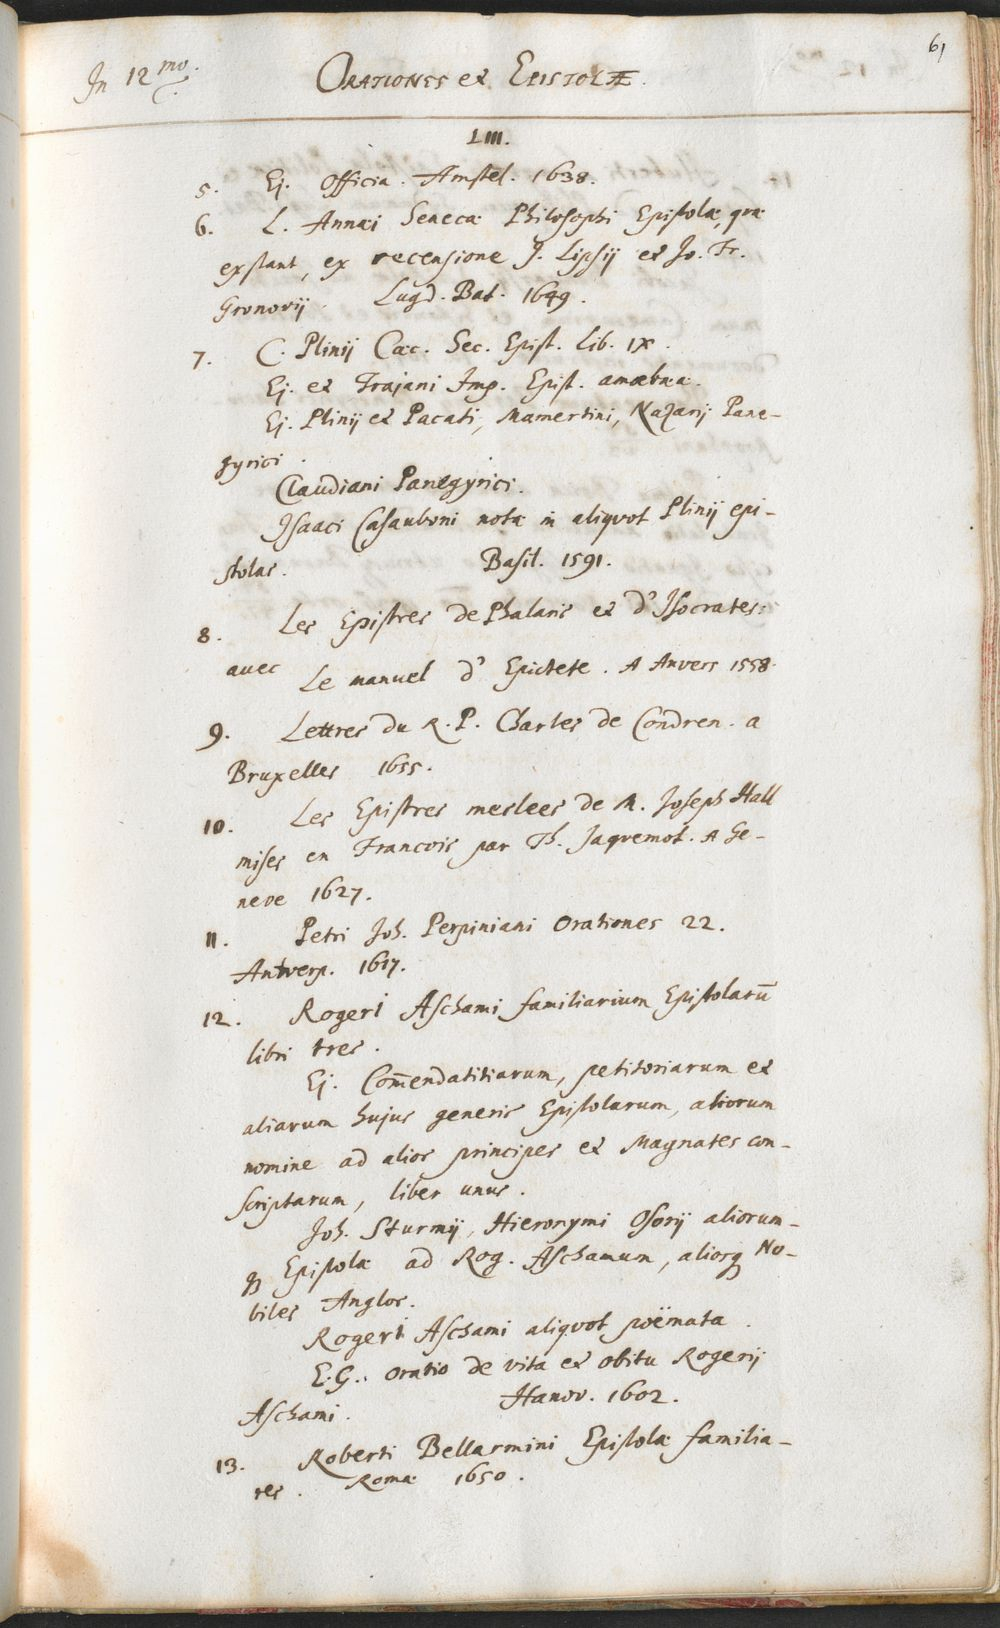 61
In 12mo. ORATIONES et EPISTOLÆ.
LIII.
5. Ej. Officia. Amstel. 1638.
6. L. Annæi Senecæ Philosophi Epistolæ, quæ
exstant, ex recensione J. Lipsij et Jo. Fr.
Gronovij. Lugd. Bat. 1649.
7. C. Plinij Cæc. Sec. Epist. Lib. IX.
Ej. et Trajani Imp. Epist. amœbææ.
Ej. Plinij et Pacati, Mamertini, Nazarij Pane-
gyrici.
Claudiani Panegyrici.
Isaaci Casauboni notæ in aliquot Plinij epi-
stolas. Basil. 1591.
8. Les Epistres de Phalaris et d'Isocrates:
avec Le manuel d'Epictete. A Anvers 1558.
9. Lettres du R. P. Charles de Condren. a
Bruxelles 1655.
10. Les Epistres meslees de M. Joseph Hall
mises en Francois par Th. Jaquemot. A Ge-
neve 1627.
11. Petri Joh. Perpiniani Orationes 22.
Antverp. 1617.
12. Rogeri Aschami familiarium Epistolarū
libri tres.
Ej. Com̄endatitiarum, petitoriarum et
aliarum hujus generis Epistolarum, aliorum
nomine ad alios principes et Magnates con-
scriptarum, liber unus.
Joh. Sturmij, Hieronymi Osorij aliorum-
qꝫ Epistolæ ad Rog. Aschamum, aliosqꝫ No-
biles Anglos.
Rogeri Aschami aliquot poëmata.
E.G.. oratio de vita et obitu Rogerij
Aschami. Hanov. 1602.
13. Roberti Bellarmini Epistolæ familia-
res. Romæ 1650.